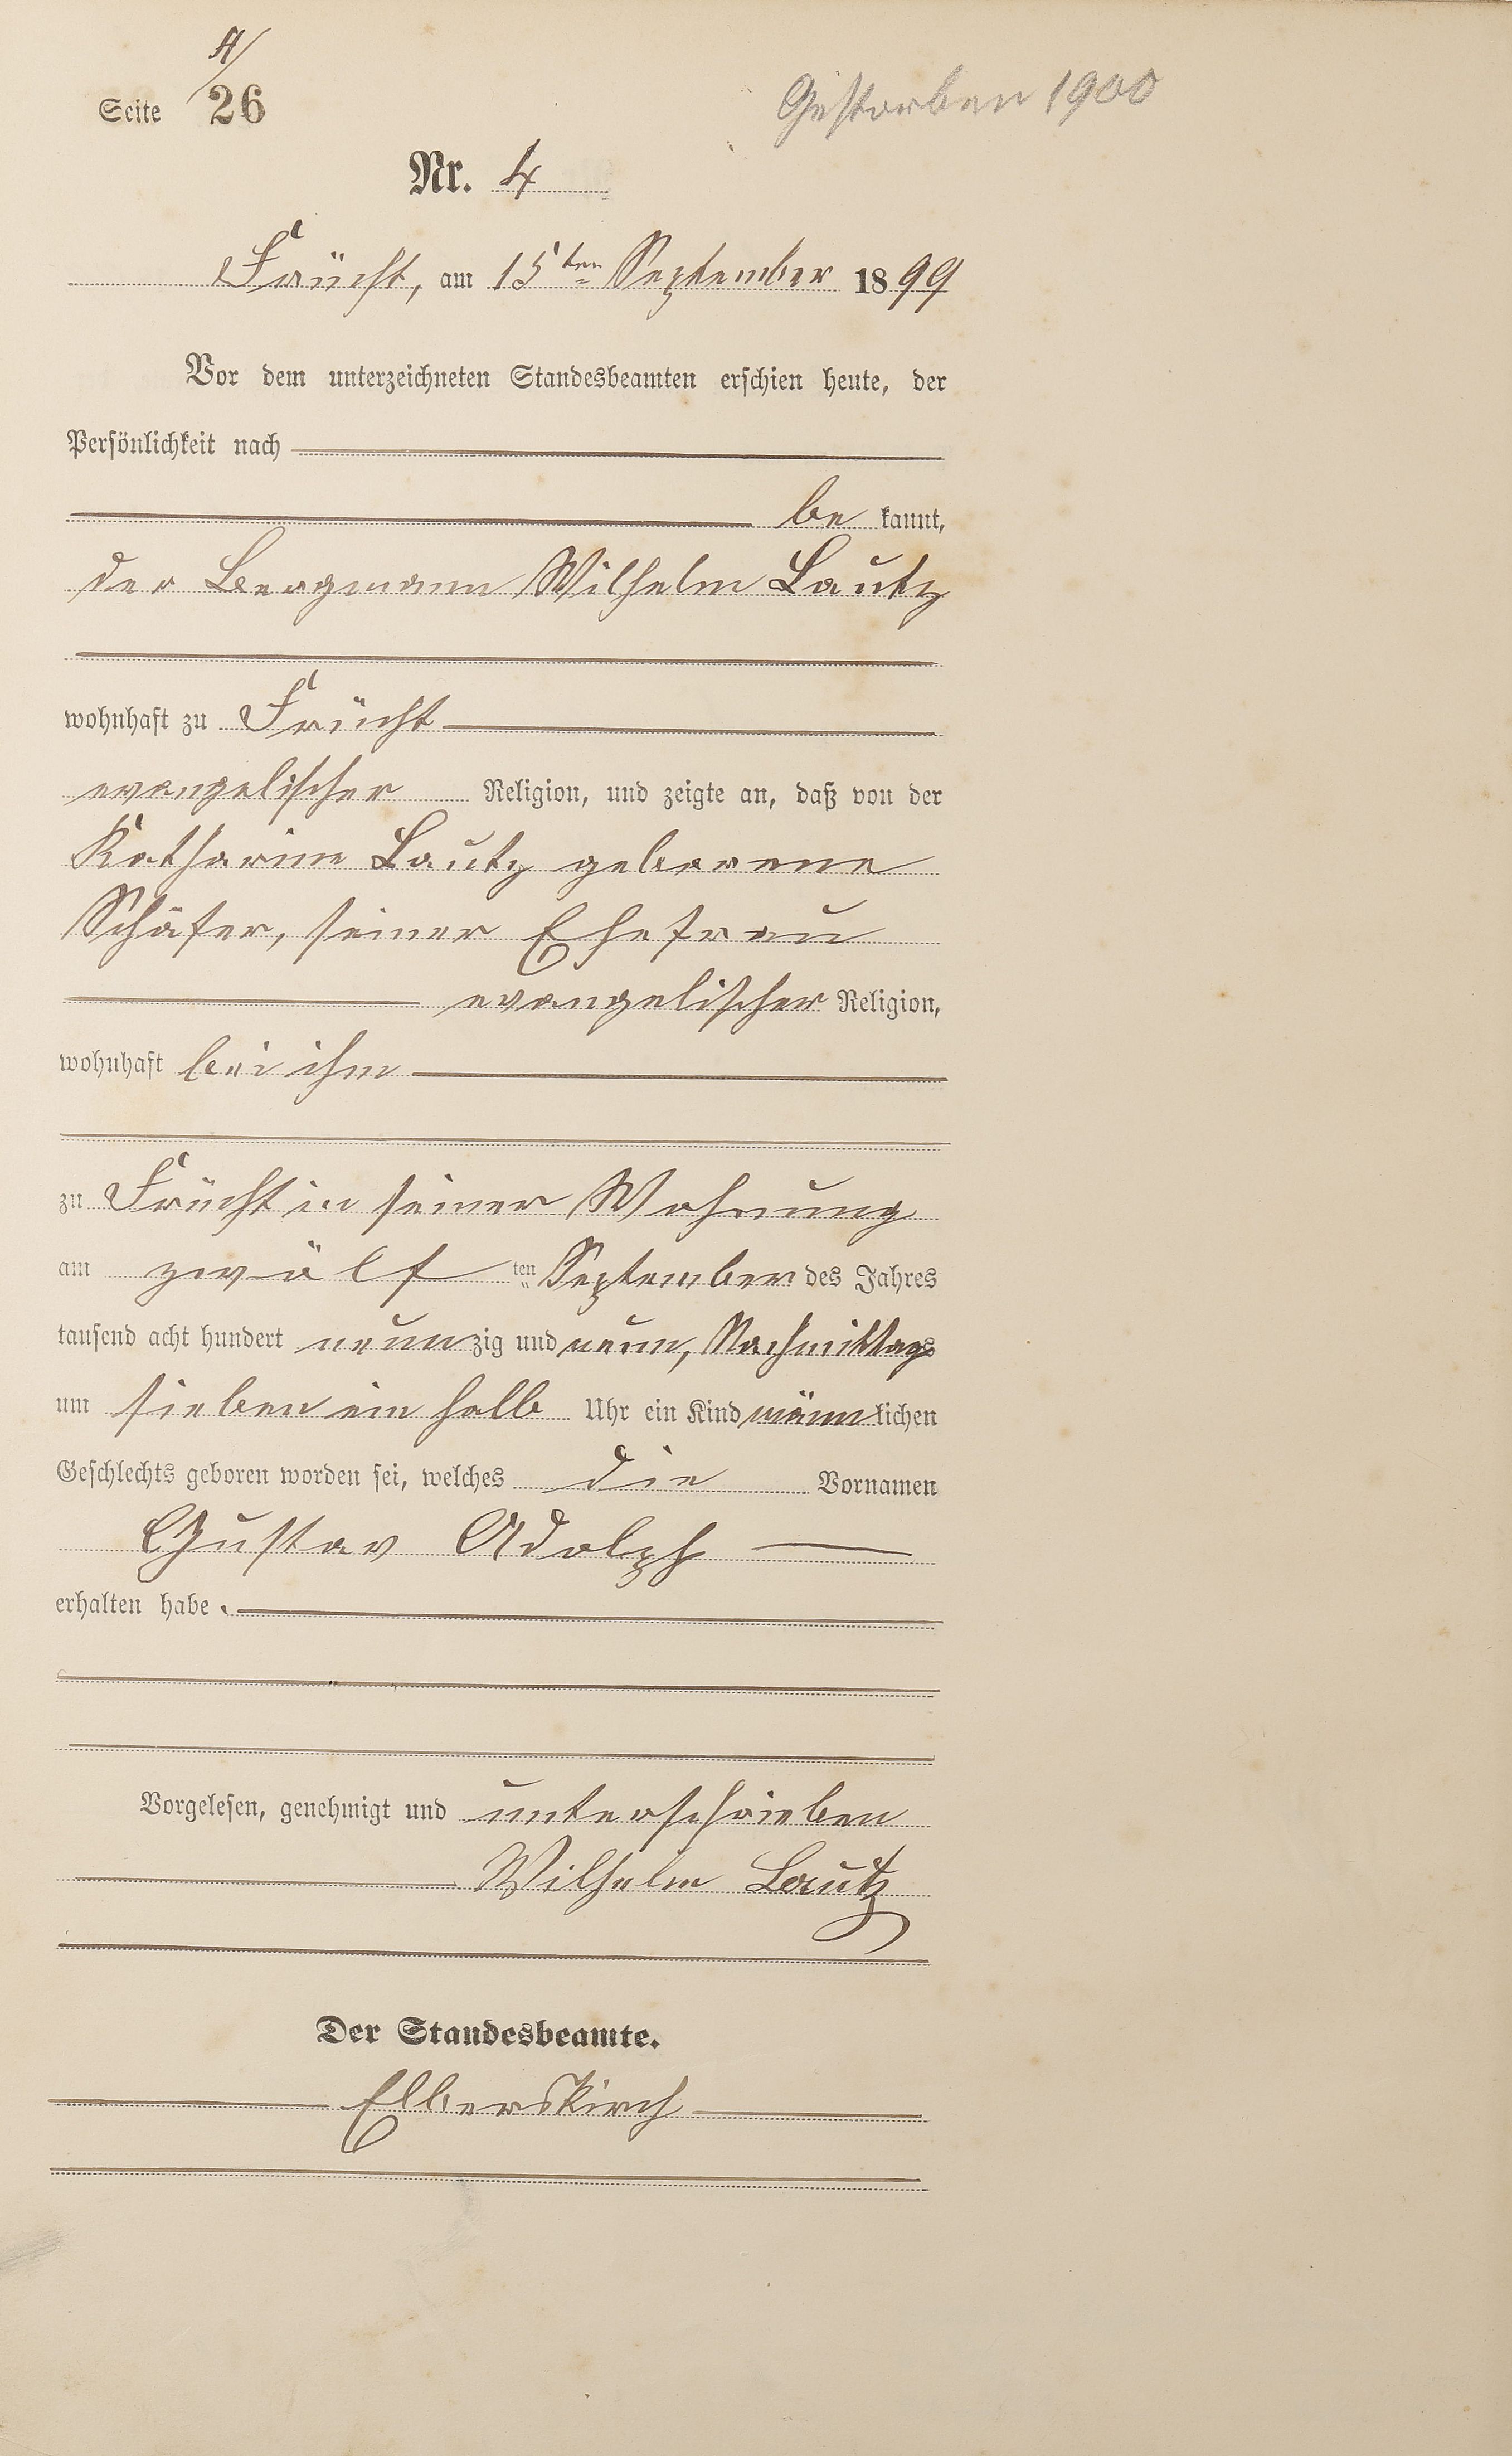 A/
Seite 26
Gestorben 1900
Nr. 4
Frücht, am 15ten September 1899
Vor dem unterzeichneten Standesbeamten erschien heute, der
Persönlichkeit nach
be kannt,
der Bergmann Wilhelm Lautz
wohnhaft zu Frücht
evangelischer Religion, und zeigte an, daß von der
Katharine Lautz geborene
Schäfer, seiner Ehefrau
evangelischer Religion,
wohnhaft bei ihm
zu Frücht in seiner Wohnung
am zwölf ten September des Jahres
tausend acht hundert neunzig und neun, Nachmittags
um sieben ein halb Uhr ein Kind männlichen
Geschlechts geboren worden sei, welches die Vornamen
Gustav Adolph
erhalten habe.
Vorgelesen, genehmigt und unterschrieben
Wilhelm Lautz
Der Standesbeamte.
Elberskirch